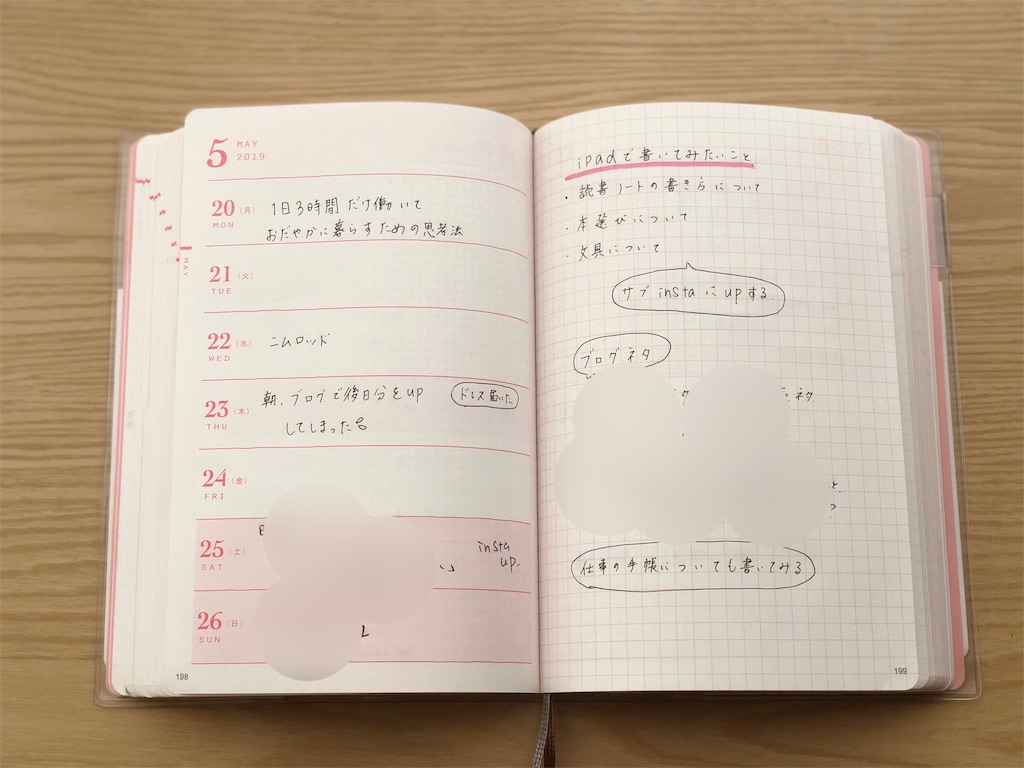 5 MAY
2019
20 (月) 1日3時間だけ働いて
MON おだやかに暮らすための思考法
21 (火)
TUE
MAY
22 (水) ニムロッド
WED
23 (木) 朝、ブログで後日分をup ドレス届いた
THU してしまった
24 (金)
FRI
25 (土) insta
SAT up.
26 (日)
SUN
198
ipadで書いてみたいこと
・読書ノートの書き方について
・本選びについて
・文具について
サブinstaにupする
ブログネタ
ネタ
仕事の手帳についても書いてみる
199